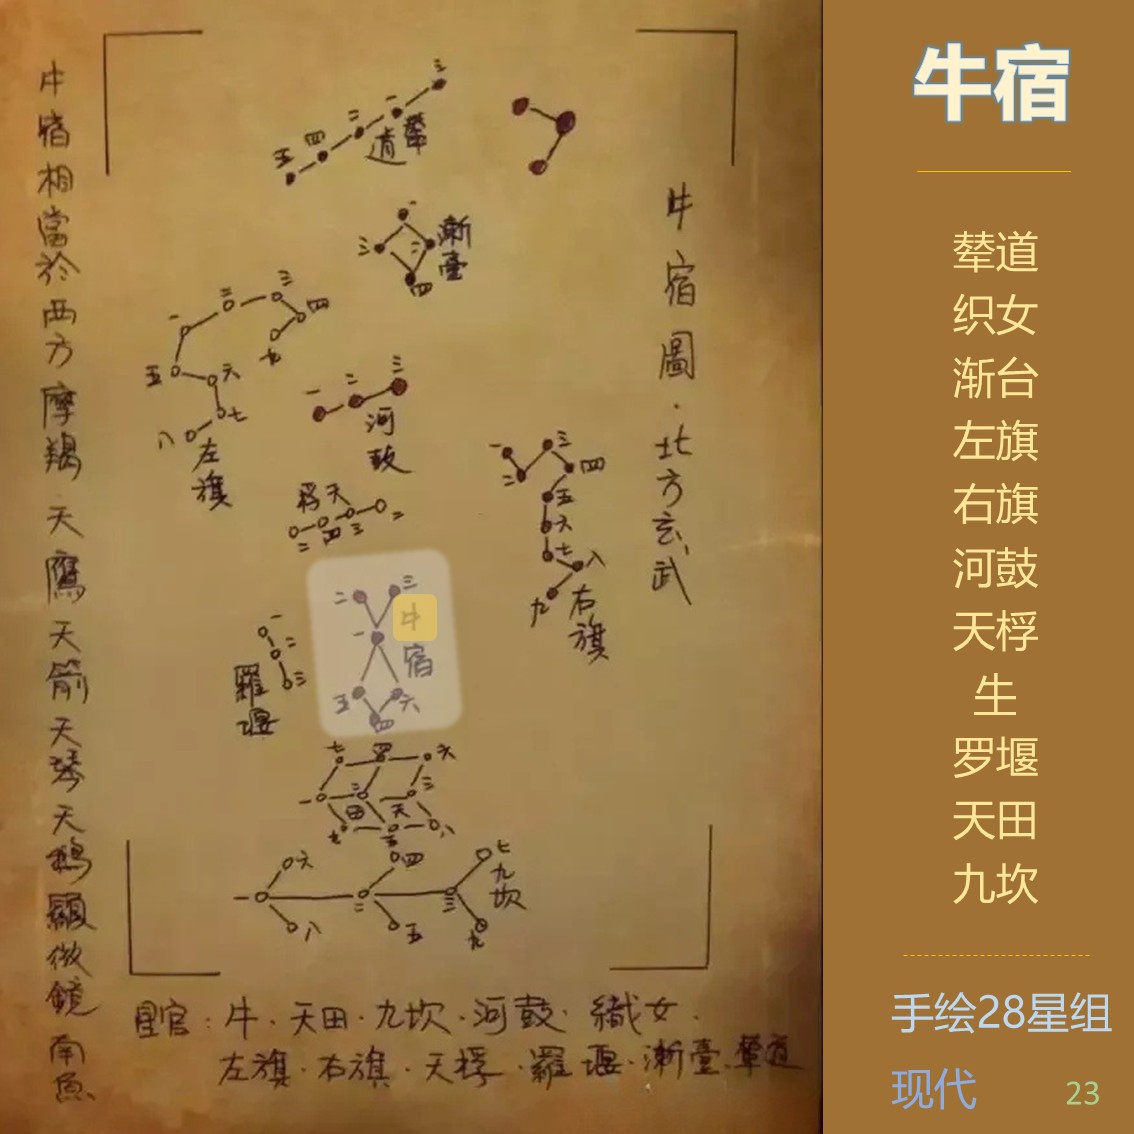 牛宿相當於西方摩羯天鷹天箭天琴天鵝顯微鏡南魚
三
一
二
四
五
輦道
一
二
三
四
漸臺
一
二
三
四
五
六
七
八
九
左旗
一
二
三
河鼓
天桴
一
二
三
四
一
二
三
四
五
六
七
八
九
右旗
一
二
三
四
五
六
牛宿
一
二
三
羅堰
七
四
六
一
二
三
天田
九
五
八
六
四
七
一
二
三
八
五
九
九坎
牛宿圖·北方玄武
星官:牛·天田·九坎·河鼓·織女·
左旗·右旗·天桴·羅堰·漸臺·輦道
牛宿
辇道
织女
渐台
左旗
右旗
河鼓
天桴
生
罗堰
天田
九坎
手绘28星组
现代
23